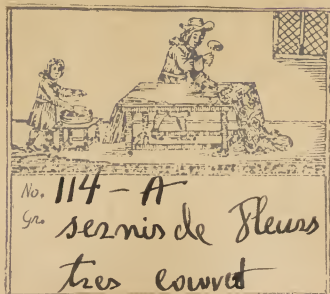 No. 114-A
Gr. semis de Fleurs
tres couvert